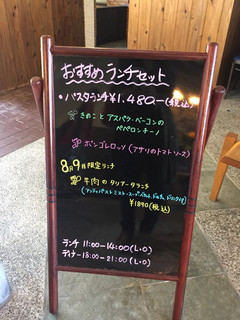 おすすめランチセット
・パスタランチ ¥1,480-(税込)
きのことアスパラ・ベーコンの
ペペロンチーノ
ボンゴレロッソ(アサリのトマトソース)
8月9月限定ランチ
牛肉のタリアータランチ
¥1890(税込)
ランチ 11:00-14:00(L.O)
ディナー18:00-21:00(L.O)